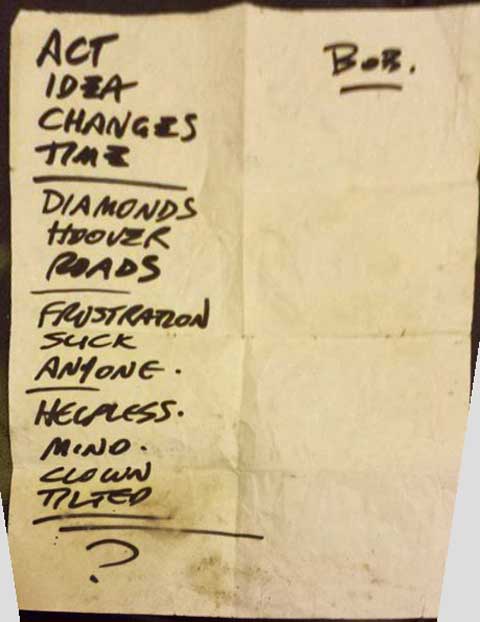 ACT
IDEA
CHANGES
TIME
DIAMONDS
HOOVER
ROADS
FRUSTRATION
SLICK
ANYONE.
HELPLESS.
MIND.
CLOWN
TILTED
?
BOB.